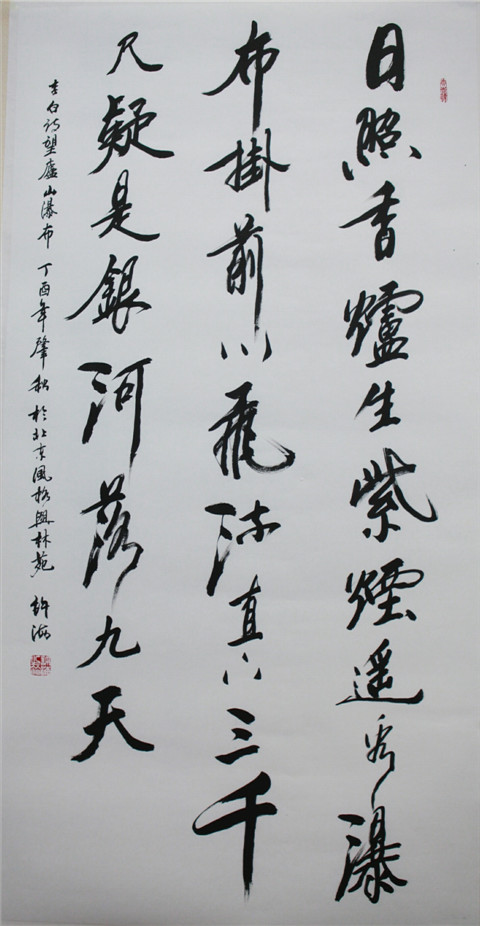 日照香爐生紫煙遥看瀑
布掛前川飛流直下三千
尺疑是銀河落九天
李白诗望廬山瀑布 丁酉年肇秋於北京風格與林苑 許海